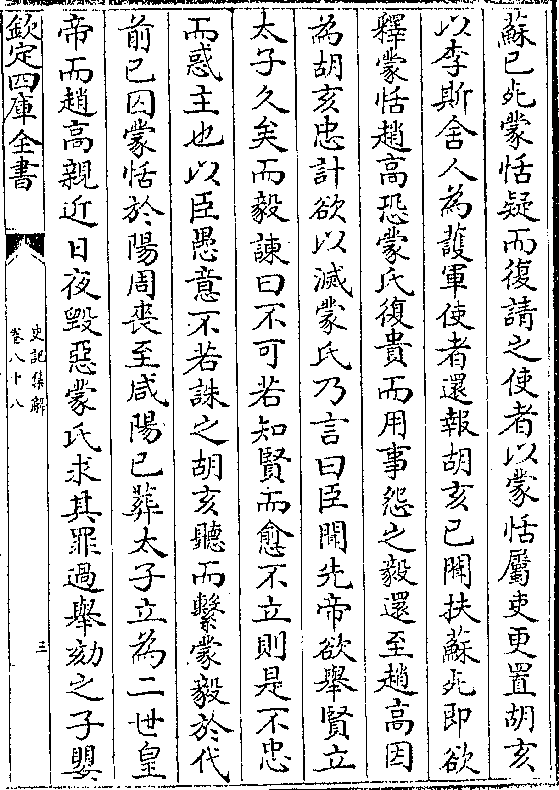 蘇已死蒙恬疑而復請之使者以蒙恬屬吏更置胡亥
以李斯舍人為護軍使者還報胡亥已聞扶蘇死即欲
釋蒙恬趙高恐蒙氏復貴而用事怨之毅還至趙高因
為胡亥忠計欲以滅蒙氏乃言曰臣聞先帝欲舉賢立
太子久矣而毅諫曰不可若知賢而愈不立則是不忠
而惑主也以臣愚意不若誅之胡亥聽而繫蒙毅於代
前已囚蒙恬於陽周喪至咸陽已葬太子立為二世皇
帝而趙高親近日夜毀惡蒙氏求其罪過舉劾之子嬰
欽定四庫全書
史記集解
卷八十八
三